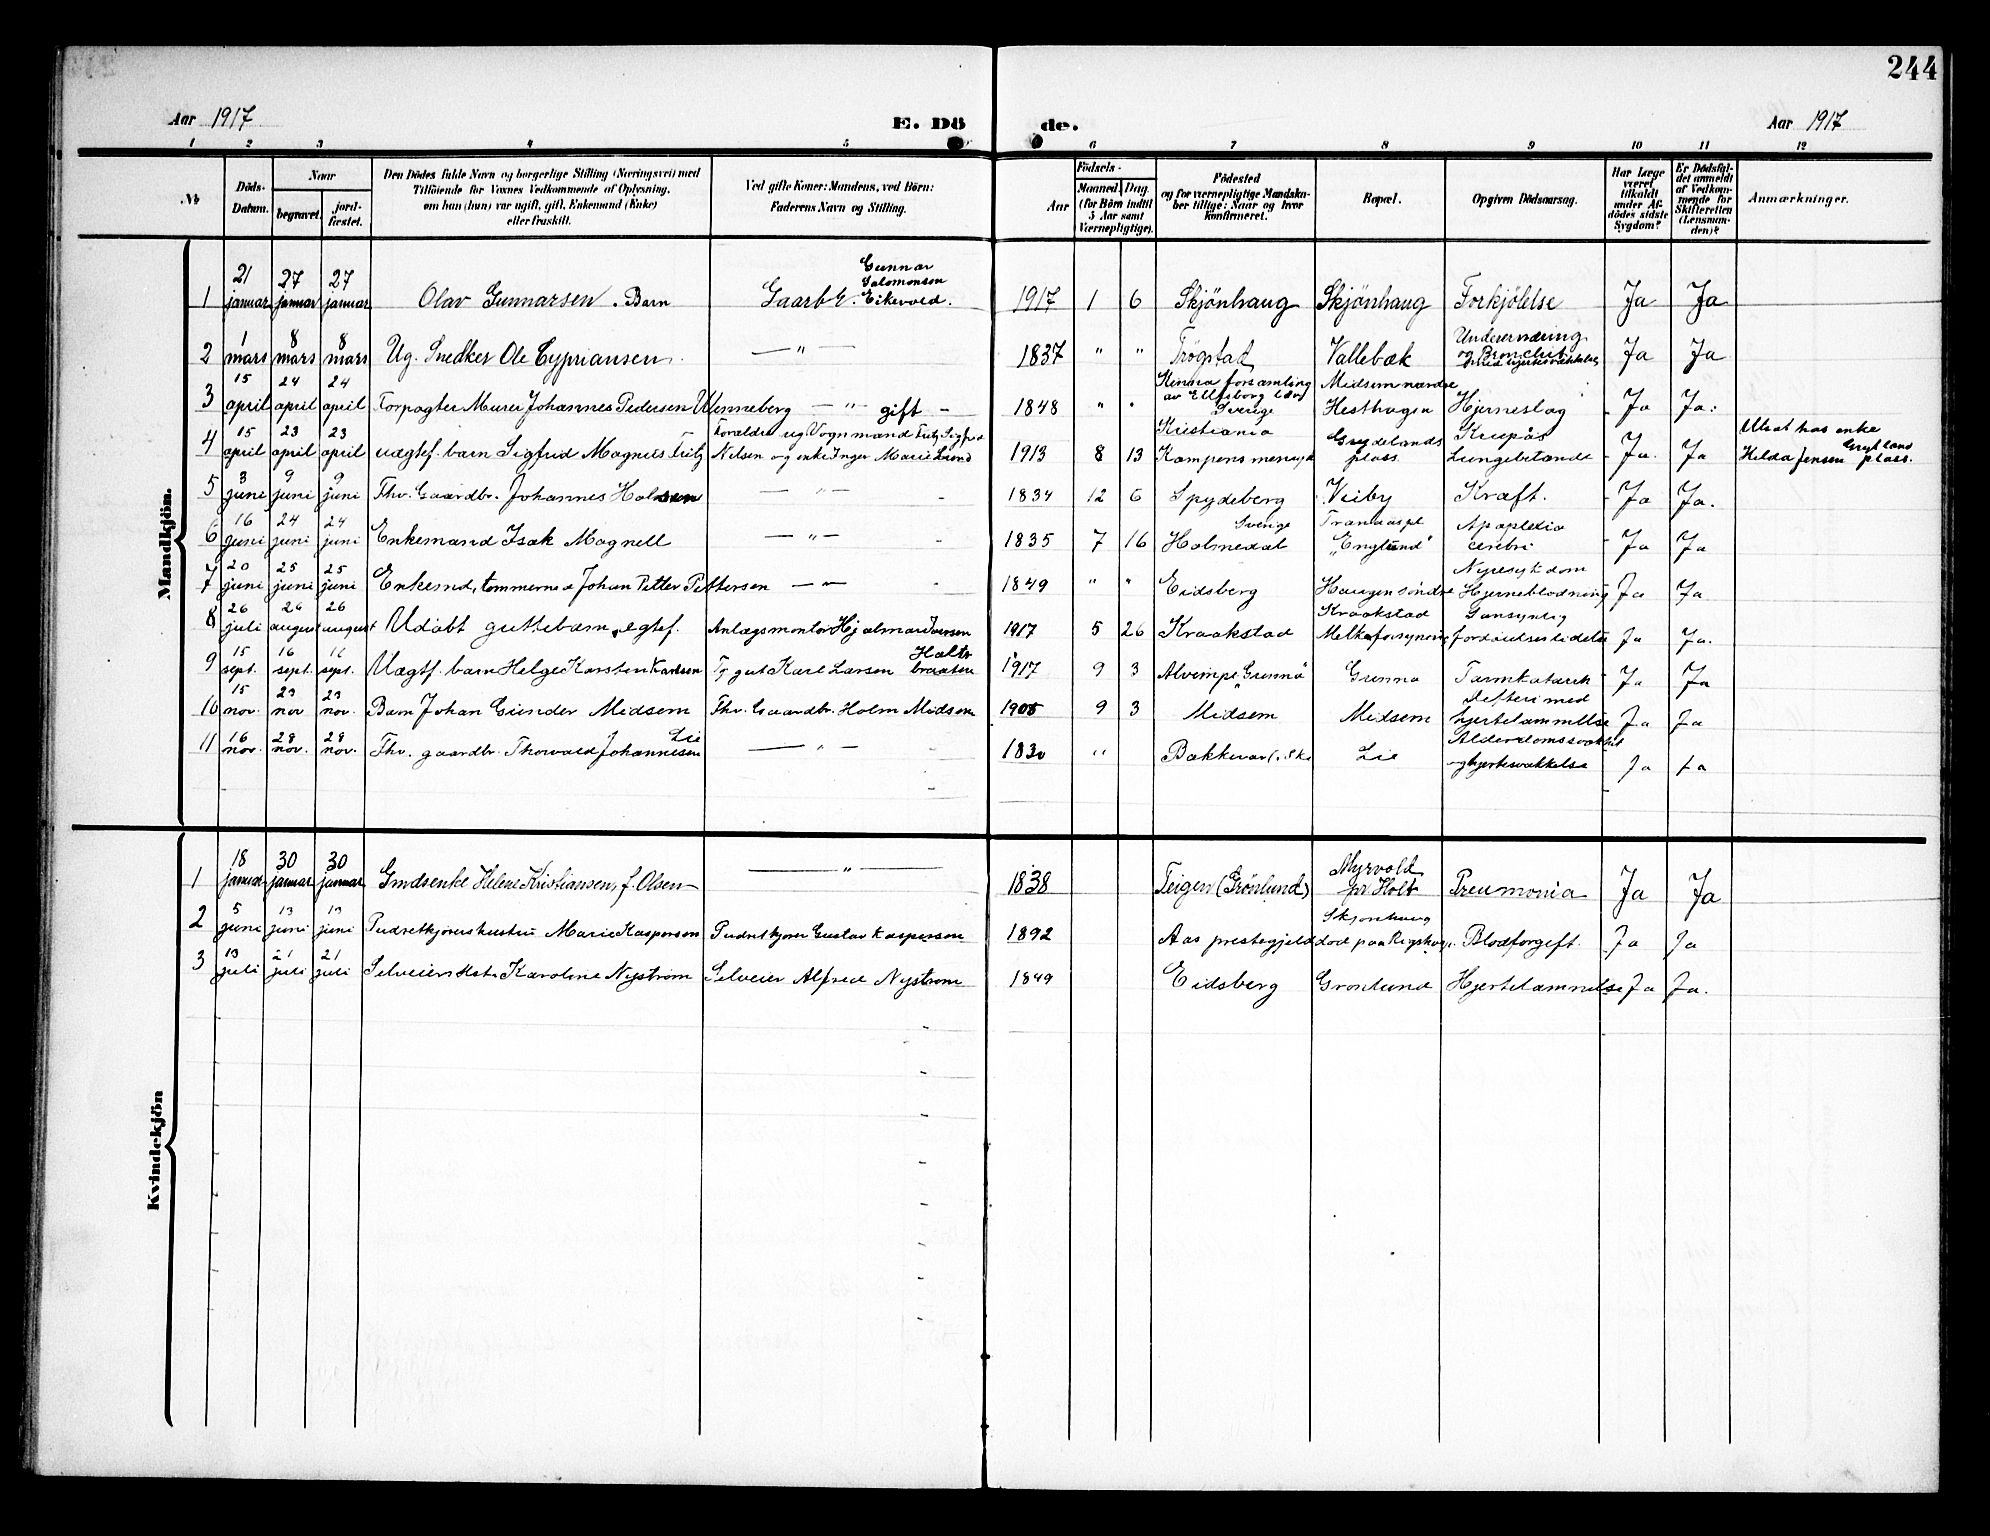 244
Aar 1917 E. Dö de. Aar 1917
1 2 3 4 5 6 7 8 9 10 11 12
No Döds-Datum. Naar begravet. jordfæstet. Den Dödes fulde Navn og borgerlige Stilling (Næringsvei) med Tilföiende for Voxnes Vedkommende af Oplysning, om han (hun) var ugift, gift, Enkemand (Enke) eller fraskilt. Ved gifte Koner: Mandens, ved Börn: Faderens Navn og Stilling. Födsels- Aar Maaned. Dag. (for Börn indtil 5 Aar samt Værnepligtige). Födested og for værnepligtige Mandskaber tillige: Naar og hvor konfirmeret. Bopæl. Opgiven Dödsaarsag. Har Læge været tilkaldt under Afdödes sidste Sygdom? Er Dödsfaldet anmeldt af Vedkommende for Skifteretten (Lensmanden)? Anmærkninger.
Mandkjön.
1 21 januar 27 januar 27 januar Olav Gunnarsen. Barn Gaardbr. Gunnar Salomonsen Eikevold. 1917 1 6 Skjönhaug Skjönhaug Forkjölelse Ja Ja
2 1 mars 8 mars 8 mars Ug. Snedker Ole Cypriansen — " — 1837 " " Trögstad Vallebæk Underernæring og Bronchit Ja Ja
3 15 april 24 april 24 april Forpagter Murer Johannes Pedersen Wenneberg — " — gift - 1848 " " Kinna forsamling av Elfsborg län Sverige Midsem nordre Hesthagen Hjerneslag Ja Ja.
4 15 april 23 april 23 april uægtef. barn Sigfrid Magnus Fritz Forældre ug. Vognmand Fritz Sigfred Nilsen og enke Inger Marie Lund 1913 8 13 Kristiania Kampens menigh plass. Krupøs Lungebetændelse Ja Ja Utsat hos enke Hilda Jensen plass.
5 3 juni 9 juni 9 juni Fhv. Gaardbr. Johannes — " — 1834 12 6 Spydeberg Viiby Kræft. Ja Ja.
6 16 juni 24 juni 24 juni Enkemand Isak Magnell — " — 1835 7 16 Holmedal Sverige "Englund" Apoplexia cerebri Ja Ja
7 20 juni 25 juni 25 juni Enkemd, tømmermd Johan Petter Pettersen — " — 1849 " " Eidsberg Haugen söndre Nyresykdom Hjerneblödning Ja Ja
8 26 juli 26 august 26 august Udöbt guttebarn, egtef. Anlægsmontör Hjalmar 1917 5 26 Kraakstad Kraakstad Sansynlig Ja Ja.
9 15 sept. 16 sept. 16 sept. Uægtf. barn Helge Karsten Karlsen Tj. gut Karl Larsen 1917 9 3 "Grinna" Grinna Tarmkatarrh Ja Ja
10 15 nov. 23 nov 23 nov. Barn Johan Gunder Midsem Fhv. Gaardbr. Holm Midsem 9 3 Midsem Midsem Defteri med hjertelammelse Ja Ja
11 16 nov. 28 nov. 28 nov. Fhv. gaardbr. Thorvald Johannesen Lie — " — 1830 " Lie Alderdomssvækket og hjertesvækkelse Ja Ja
Kvindekjön
1 18 januar 30 januar 30 januar Gmdsenke Helene Kristiansen, f. Olsen — " — 1838 Teigen (Grönlund) Myrvold pr Holt Pneumonia Ja Ja
2 5 juni 13 juni 13 juni Pudretkjørers hustru Marie Kaspersen Pudretkjører Gustav Kaspersen 1892 Aas prestegjeld Skjønhaug død paa Blodforgift. Ja Ja
3 13 juli 21 juli 21 juli Selveiers Hst. Karoline Nystrøm Selveier Alfred Nystrøm 1849 Eidsberg Grønlund Hjertelammelse Ja Ja.